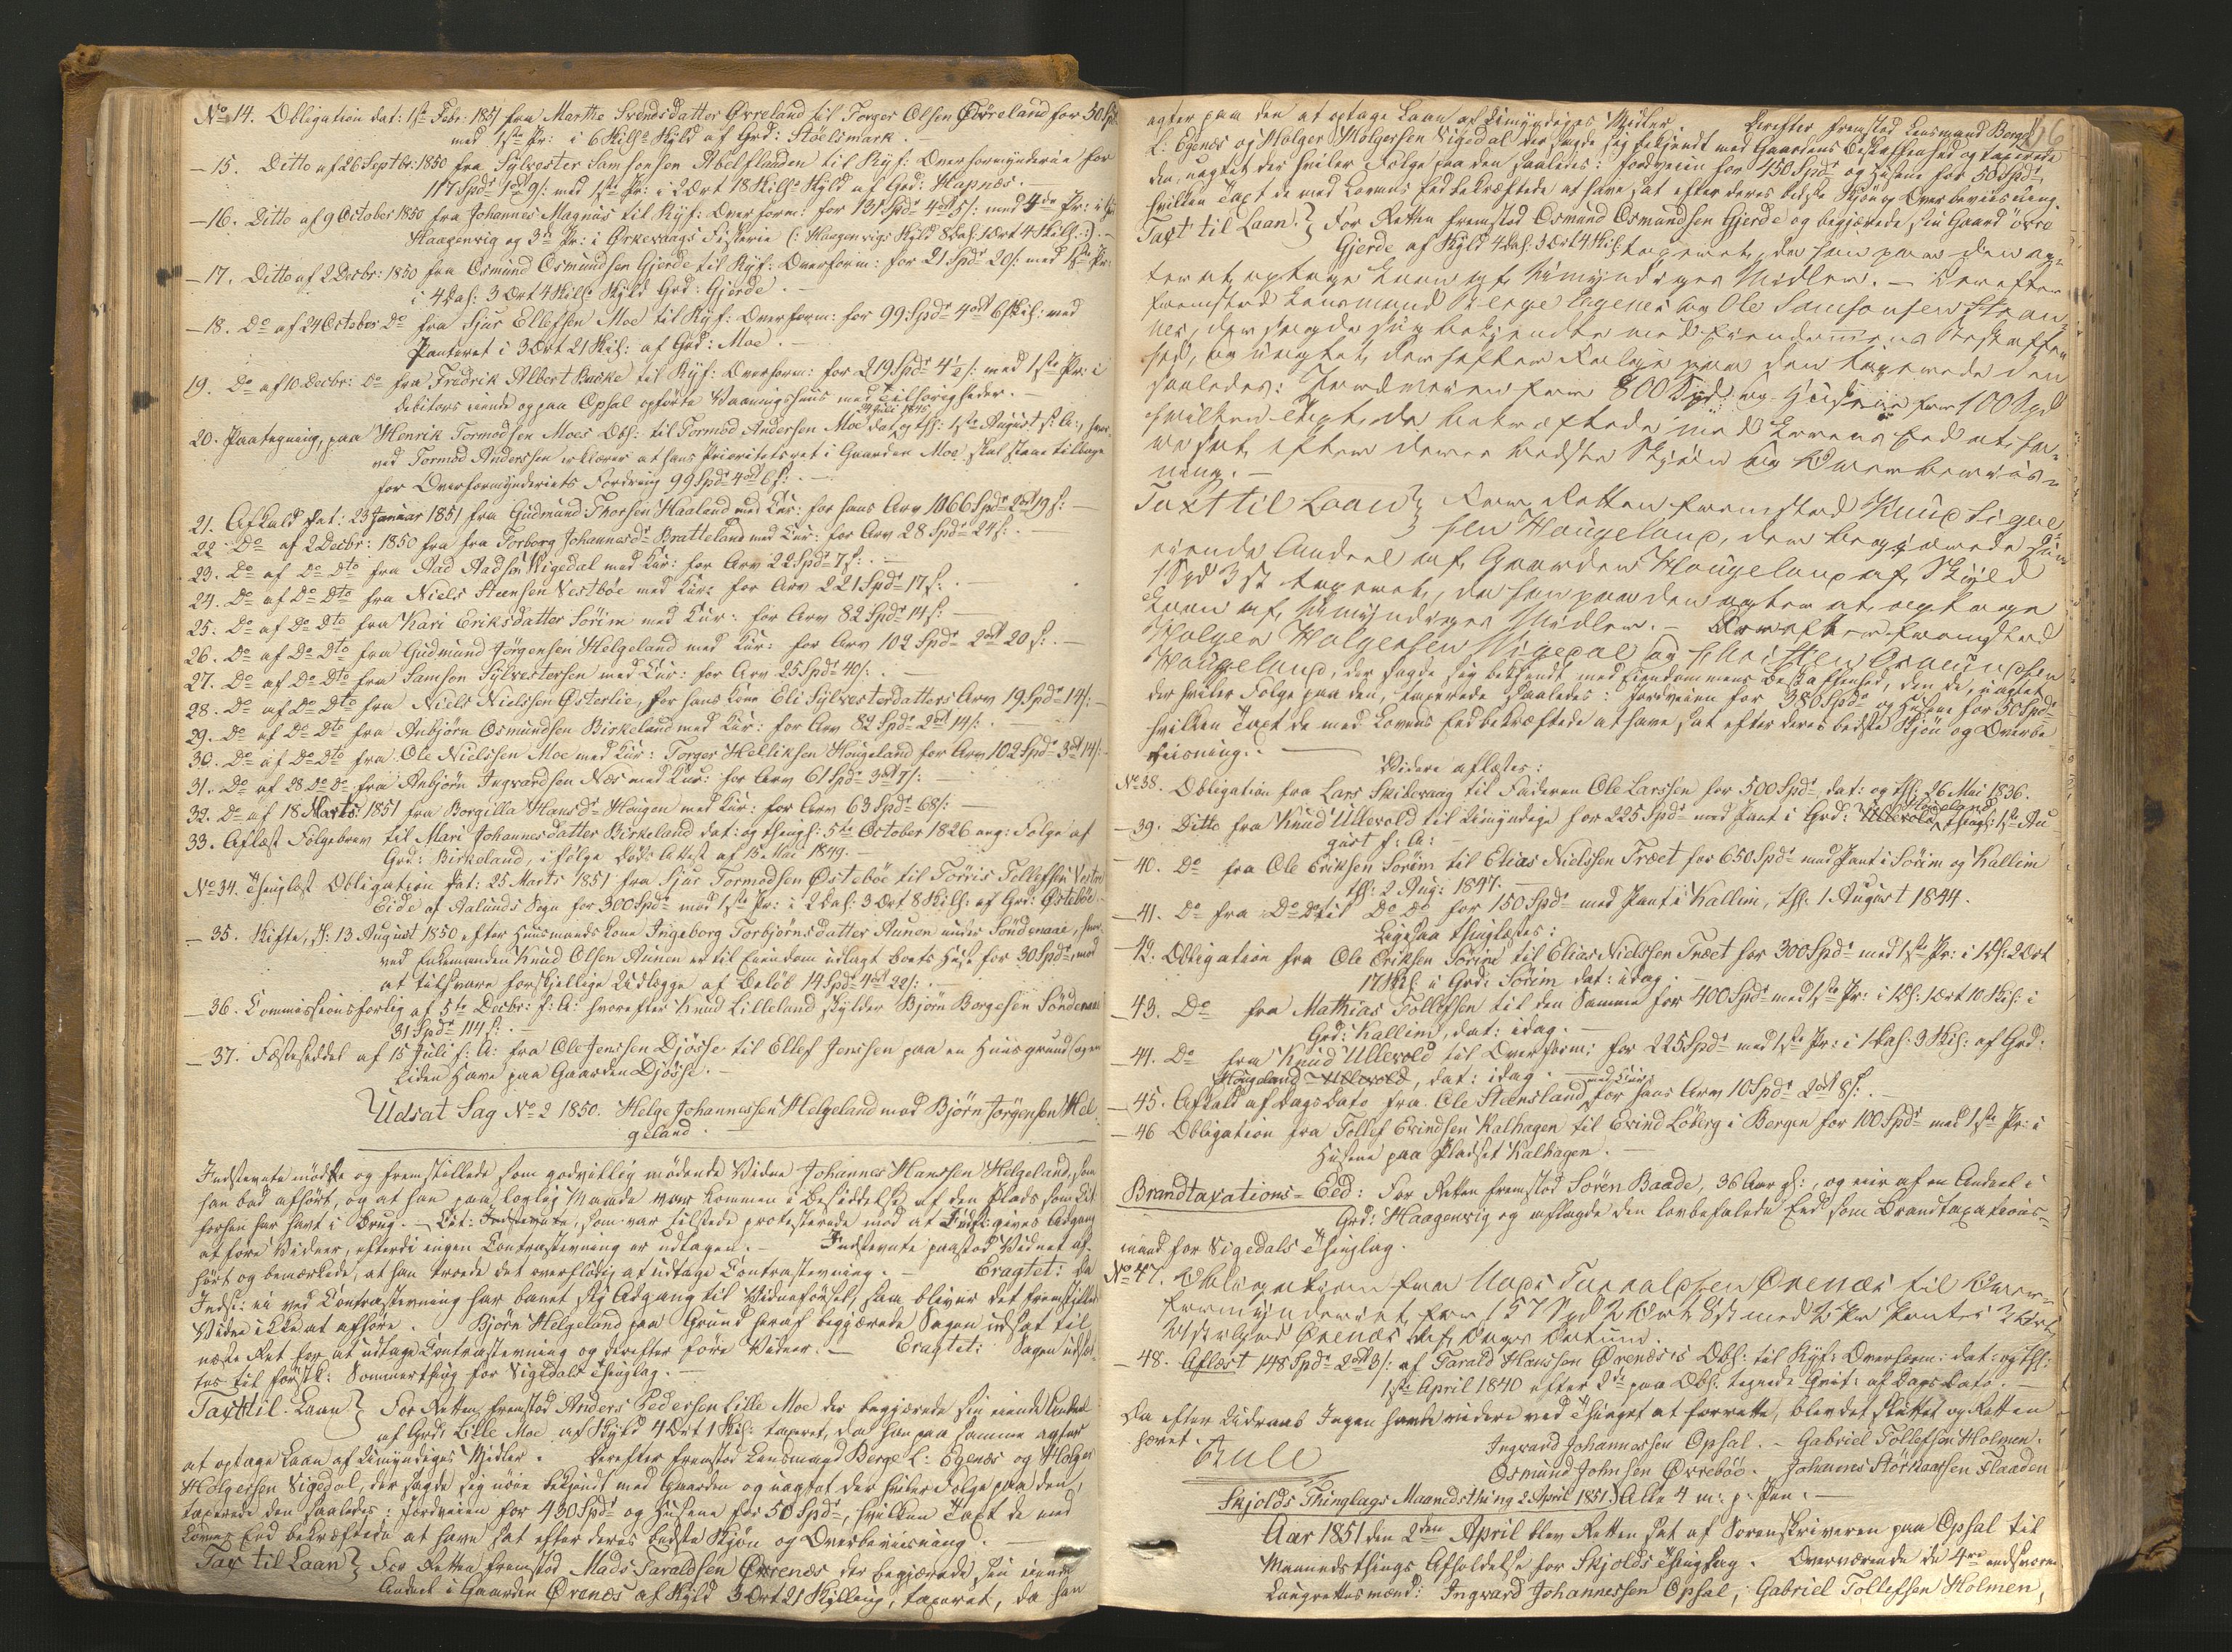 No 14. Obligation dat: 1ste Febr: 1851 fra Marthe Svendsdatter Øvreland til Torger Olsen Øvreland for 50 Spd
med 1ste Pr: i 6 Skill: Skyld af Grd: Støelsmark.
- 15. Ditto af 26 Septbr: 1850 fra Sylvester Samsonsen Abelflaaden til Ryf: Overformynderie for
117 Spdr 1 ort 9 s: med 1ste Pr: i 2 Ort 18 Skill: Skyld af Grd: Hapnæs. -
- 16. Ditto af 9 October 1850 fra Johannes Magnus til Ryf: Overform: for 131 Spdr 4 ort 5 s: med 4de Pr: i
Haagenvig og 3die Pr: i Ørkevaags Fiskerie (: Haagenvigs Skyld 8 Las: 1 Ort 4 Skill: :). -
- 17. Ditto af 2 Decbr: 1850 fra Osmund Osmundsen Gjerde til Ryf: Overform: for 21 Spdr 20 s: med 1ste Pr:
i 4 Las: 3 Ort 4 Skill: Skyld Grd: Gjerde. -
- 18. Do af 24 October Do fra Sjur Ellefsen Moe til Ryf: Overform: for 99 Spdr 4 ort 6 Skil: med
Panteret i 3 Ort 21 Skil: af Grd: Moe. -
19. Do af 10 Decbr: Do fra Fredrik Albert Backe til Ryf: Overform: for 219 Spdr 4 1/2 s: med 1ste Pr: i
debitors eiende og paa Opsal opførte Vaaningshuus med Tilhørigheder. -
31 Juli 1845
20. Paategning, paa Henrik Tormodsen Moes Obl: til Tormod Andersen Moe dat: og thl: 1ste August f: A:, hvor-
ved Tormod Anderssen erklærer at hans Prioritetsret i Gaarden Moe skal staae tilbage
for Overformynderiets Fordring 99 Spdr 4 ort 6 s. -
21. Afkald dat: 23 Januar 1851 fra Gudmund Thorsen Haaland med Cur: for hans Arv 1066 Spdr 2 ort 19 s: -
22 Do af 2 Decbr: 1850 fra fra Torborg Johannesdr Bratteland med Cur: for Arv 28 Spdr 24 s: .
23. Do af Do Dto fra Aad Aadsen Vigedal med Cur: for Arv 22 Spdr 7 s: . -
24. Do af Do Dto fra Niels Steensen Vestbøe med Cur: for Arv 221 Spdr 17 s: .
25. Do af Do Dto fra Kari Eriksdatter Sørim med Cur: for Arv 82 Spdr 14 s: -
26. Do af Do Dto fra Gudmund Jørgensen Helgeland med Cur: for Arv 102 Spdr 2 ort 20 s: . -
27. Do af Do Dto fra Samson Sylvestersen med Cur: for Arv 25 Spdr 40 s: .
28. Do af Do Dto fra Niels Nielssen Østerlie, for hans Kone Eli Sylvesterdatters Arv 19 Spdr 14 s: -
29. Do af Do Dto fra Anbjørn Osmundsen Birkeland med Cur: for Arv 82 Spdr 2 ort 14 s: .
30. Do af Do Dto fra Ole Nielssen Moe med Cur: Torger Helliksen Hougeland for Arv 102 Spdr 3 ort 14 s: -
31. Do af 28 Do Do fra Anbjørn Ingvardsen Næs med Cur: for Arv 61 Spdr 3 ort 7 s: -
32. Do af 18 Marts 1851 fra Borgilla Hansdr Hougen med Cur: for Arv 63 Spdr 68 s: -
33. Aflæst Følgebrev til Mari Johannesdatter Birkeland dat: og thingl: 5te October 1826 ang: Følge af
Grd: Birkeland, ifølge Døds Attest af 15 Mai 1849. -
No 34. Thinglæst Obligation dat: 25 Marts 1851 fra Sjur Tormodsen Østebøe til Tørris Tollefsen Vestre
Eide af Aalunds Sogn for 300 Spdr med 1ste Pr: i 2 Las: 3 Ort 8 Skill: af Grd: Østebøe.
- 35. Skifte, sl: 13 August 1850 efter Huusmands Kone Ingeborg Torbjørnsdatter Aunen under Søndenaae, hvor-
ved Enkemanden Knud Olsen Aunen er til Eiendom udlagt boets Huse for 30 Spdr, mod
at tilsvare forskjellige Udlægge af Beløb 14 Spdr 4 ort 22 s: . -
- 36. Commissionsforlig af 5te Decbr: f: A: hvorefter Knud Lilleland skylder Bjørn Borgesen Søndenaae
31 Spdr 114 s: . -
- 37. Fæsteseddel af 15 Juli f: A: fra Ole Jenssen Djøsse til Ellef Jenssen paa en Huusgrund og en
liden Have paa Gaarden Djøsse. -
Udsat Sag No 2 1850. Helge Johannessen Helgeland mod Bjørn Jørgensen Hel-
geland.
Indstevnte mødte og fremstillede som godvillig mødende Vidne Johannes Hanssen Helgeland, som
han bad afhørt, og at han paa lovlig Maade var kommen i Besiddelse af den Plads som Cit-
herhen har havt i Brug. - Cit: Indstevnte, som var tilstede protesterede mod at Indst: gives Adgang
at føre Vidner, efterdi ingen Contrastevning er udtagen. - Indstevnte paastod Vidnet af-
hørt og bemærkede, at han troede det overflødig at udtage Contrastevning. - Eragtet: Da
Indst: ei ved Contrastevning har banet sig Adgang til Vidneførsel, saa bliver det fremstillede
Vidne ikke at afhøre. Bjørn Helgeland paa Grund heraf begjærede Sagen udsat til
næste Ret for at udtage Contrastevning og derefter føre Vidner. - Eragtet: Sagen udsæt-
tes til førstk: Sommerthing for Vigedals Thinglag. -
Taxt til Laan } For Retten fremstod Anders Pedersen Lille Moe der begjærede sin eiende Andeel
af Grd: Lille Moe af Skyld 4 Ort 1 Skil: taxeret, da han paa samme agter
at optage Laan af Umyndiges Midler. Derefter fremstod Lensmand Berge L: Egenes og Holger
Holgersen Vigedal, der sagde sig nøie bekjendt med Gaarden og uagtet der hviler Følge paa den,
taxerede den saaledes: Jordveien for 430 Spdr og Husene for 50 Spdr, hvilken Taxt de med
Lovens Eed bekræftede at have sat efter deres bedste Skjøn og Overbeviisning. -
Tax til Laan } For Retten fremstod Mads Taraldsen Ørenæs der begjærede sin eiende
Andeel i Gaarden Ørenæs af Skyld 3 Ort 21 Skilling, taxeret, da han
agter paa den at optage Laan af Umyndiges Midler. Derefter fremstod Lensmand Berge
L: Egenes og Holger Holgersen Vigedal der sagde sig bekjendt med Gaardens Beskaffenhed og taxerede
den, uagtet der hviler Følge paa den saaledes: Jordveien for 450 Spdr og Husene for 50 Spdr,
hvilken Taxt de med Lovens Eed bekræftede at have sat efter deres bedste Skjøn og Overbeviisning.
Taxt til Laan } For Retten fremstod Osmund Osmundsen Gjerde og begjærede sin Gaard øvre
Gjerde af Skyld 4 Las: 3 Ort 4 Skil: taxeret, da han paa den ag-
ter at optage Laan af Umyndiges Midler. - Derefter
fremstod Lensmand Berge Egenes og Ole Samsonsen Stran-
nes, der sagde sig bekjendte med Eiendommens Beskaffen
hed, og uagtet, der hefter Følge paa den taxerede den
saaledes: Jordveien for 800 Spd og Husene for 100 Spd
hvilken Taxt, de bekræftede med Lovens Eed at ha-
ve sat efter deres bedste Skjøn og Overbeviis-
ning. -
Taxt til Laan } For Retten fremstod Knud Sigve
sen Hougeland, der begjærede sin
eiende Andeel af Gaarden Hougeland af Skyld
1 Spd 3 s: taxeret, da han paa den agter at optage
Laan af Umyndiges Midler. - Derefter fremstod
Holger Holgersen Vigedal og
Hougeland, der sagde sig bekjendt med Eiendommens Beskaffenhed, den de, uagtet
der hviler Følge paa den, taxerede saaledes: Jordveien for 380 Spdr og Husene for 50 Spdr
hvilken Taxt de med Lovens Eed bekræftede at have sat efter deres bedste Skjøn og Overbe-
viisning. -
Videre aflæstes:
No 38. Obligation fra Lars Skibevaag til Faderen Ole Larssen for 500 Spdr, dat: og thl: 26 Mai 1836.
- 39. Ditto fra Knud Ullevold til Umyndige for 225 Spdr med Pant i Grd: Ullevold Hougeland, thingl: 1ste Au-
gust f: A: -
- 40. Do fra Ole Eriksen Sørim til Elias Nielssen Træet for 650 Spdr med Pant i Sørim og Kallim
thl: 2 Aug: 1847. -
- 41. Do fra Do Do til Do Do for 150 Spdr med Pant i Kallim, thl: 1 August 1844.
Ligesaa thinglæstes:
- 42. Obligation fra Ole Eriksen Sørim til Elias Nielssen Træet for 300 Spdr med 1ste Pr: i 1 L: 2 Ort
17 Skil: i Grd: Sørim dat: idag. -
- 43. Do fra Mathias Tollefsen til den Samme for 400 Spdr med 1ste Pr: i 1 L: 1 Ort 10 Skil: i
Grd: Kallim, dat: idag. -
- 44. Do fra Knud Ullevold til Overform: for 225 Spdr med 1ste Pr: i 1 Las: 3 Skil: af Grd:
Hougeland Ullevold, dat: idag. -
- 45. Afkald af Dags Dato fra Ole Steensland med Cur: for hans Arv 10 Spdr 2 ort 8 s: . -
- 46 Obligation fra Tollef Evindsen Kalhagen til Evind Løberg i Bergen for 100 Spdr med 1ste Pr: i
Husene paa Pladset Kalhagen. -
Brandtaxations-Eed: For Retten fremstod Søren Baade, 36 Aar gl:, og eier af en Andeel i
Grd: Haagenvig og aflagde den lovbefalede Eed som Brandtaxations-
mand for Vigedals Thinglag.
No 47. Obligation fra Mads Taraldsen Ørenæs til Over-
formynderiet for 157 Spd 2 Ort 8 s: med 1ste Pr Pant i 3 Ort
21 s: i Grd Ørenæs af Dags Datum.
- 48. Aflæst 148 Spdr 2 ort 3 s: af Tarald Hanssen Ørenæs's Obl: til Ryf: Overform: dat: og thl:
1ste April 1840 efter 2de paa Obl: tegnede Qvit: af Dags Dato. -
Da efter Udraab Ingen havde videre ved Thinget at forrette, blev det sluttet og Retten
hævet.
Ingvard Johannessen Opsal. - Gabriel Tollefsen Holmen.
Osmund Johnsen Øvrebøe. Johannes Størkaarsen Flaaden
Skjolds Thinglags Maanedsthing 2 April 1851. } Alle 4 m: p: Pen: -
Aar 1851 den 2den April blev Retten sat af Sorenskriveren paa Opsal til
Maanedsthings Afholdelse for Skjolds Thinglag. Overværende de 4re edsvorne
Laugrettesmænd: Ingvard Johannessen Opsal, Gabriel Tollefsen Holmen,